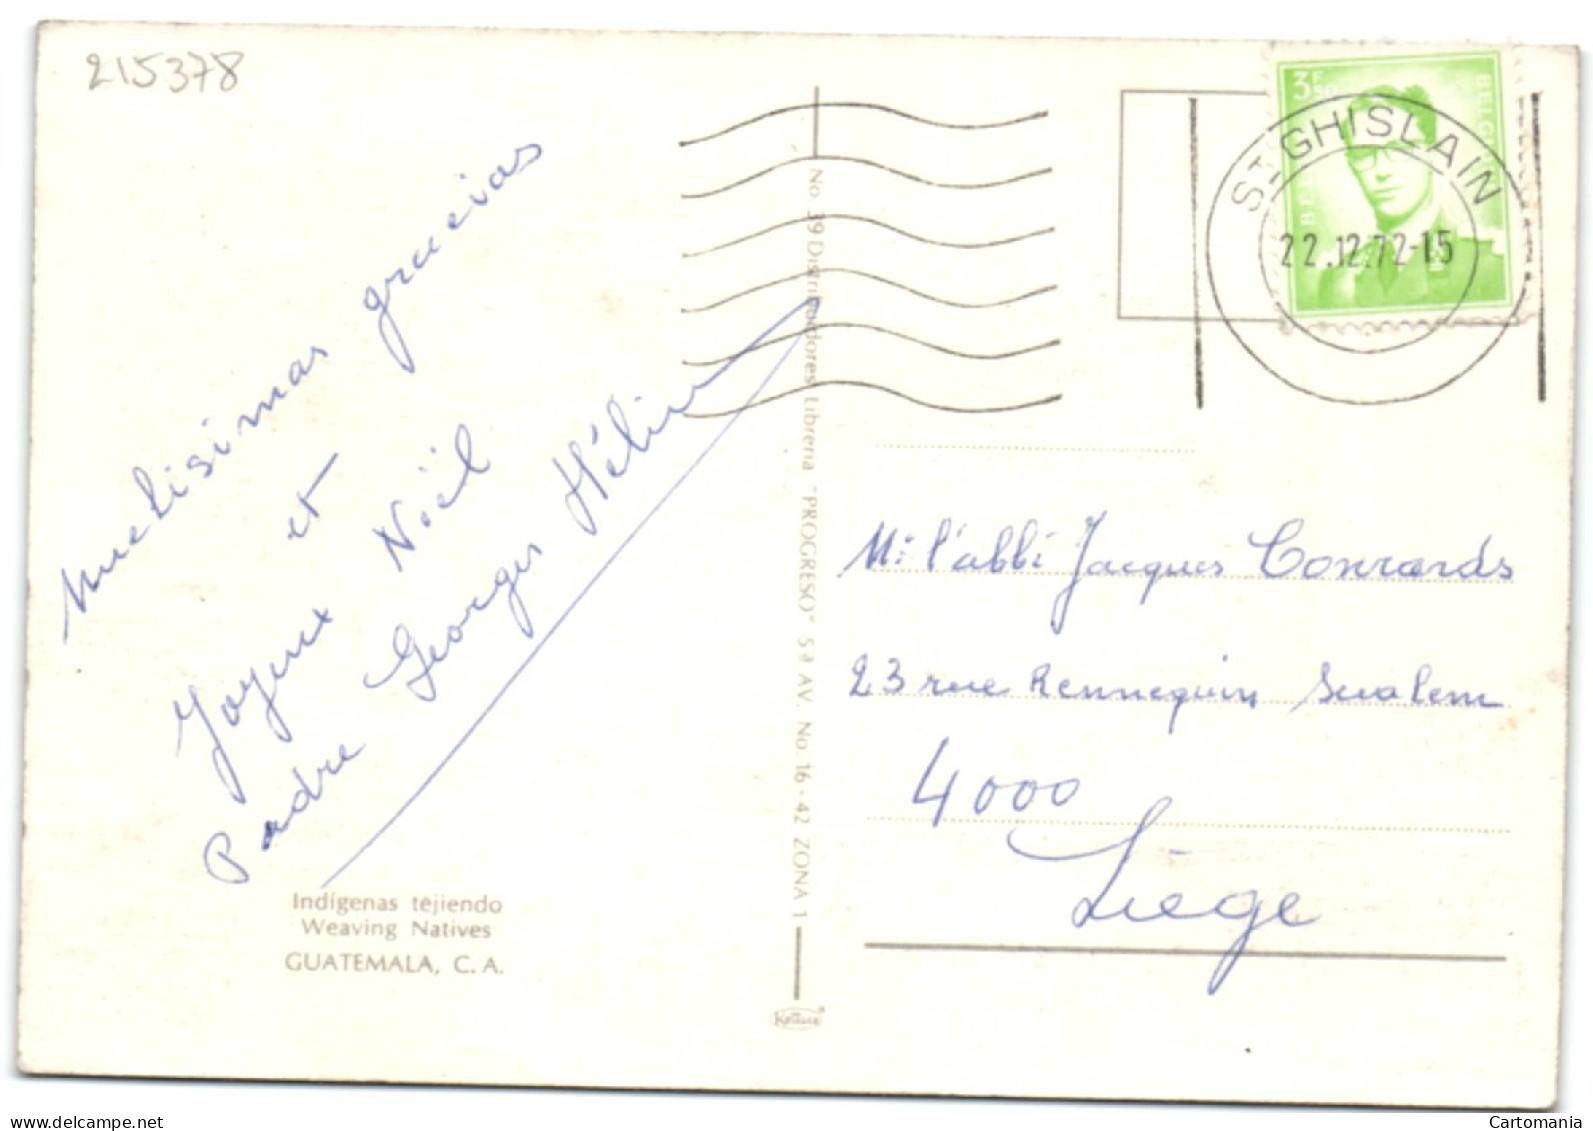 215378
muchisimas gracias
et
Joyeux Noël
Padre Georges Hélin
Indígenas tejiendo
Weaving Natives
GUATEMALA, C. A.
No. 39 Distribuidores Libreria "PROGRESO" 5a AV. No. 16-42 ZONA 1
3F50
BELGIQUE
BELGIË
ST-GHISLAIN
22.12.72-15
Mr l'abbé Jacques Conrards
23 rue Rennequin Sualem
4000
Liège
delcampe.net
Cartomania